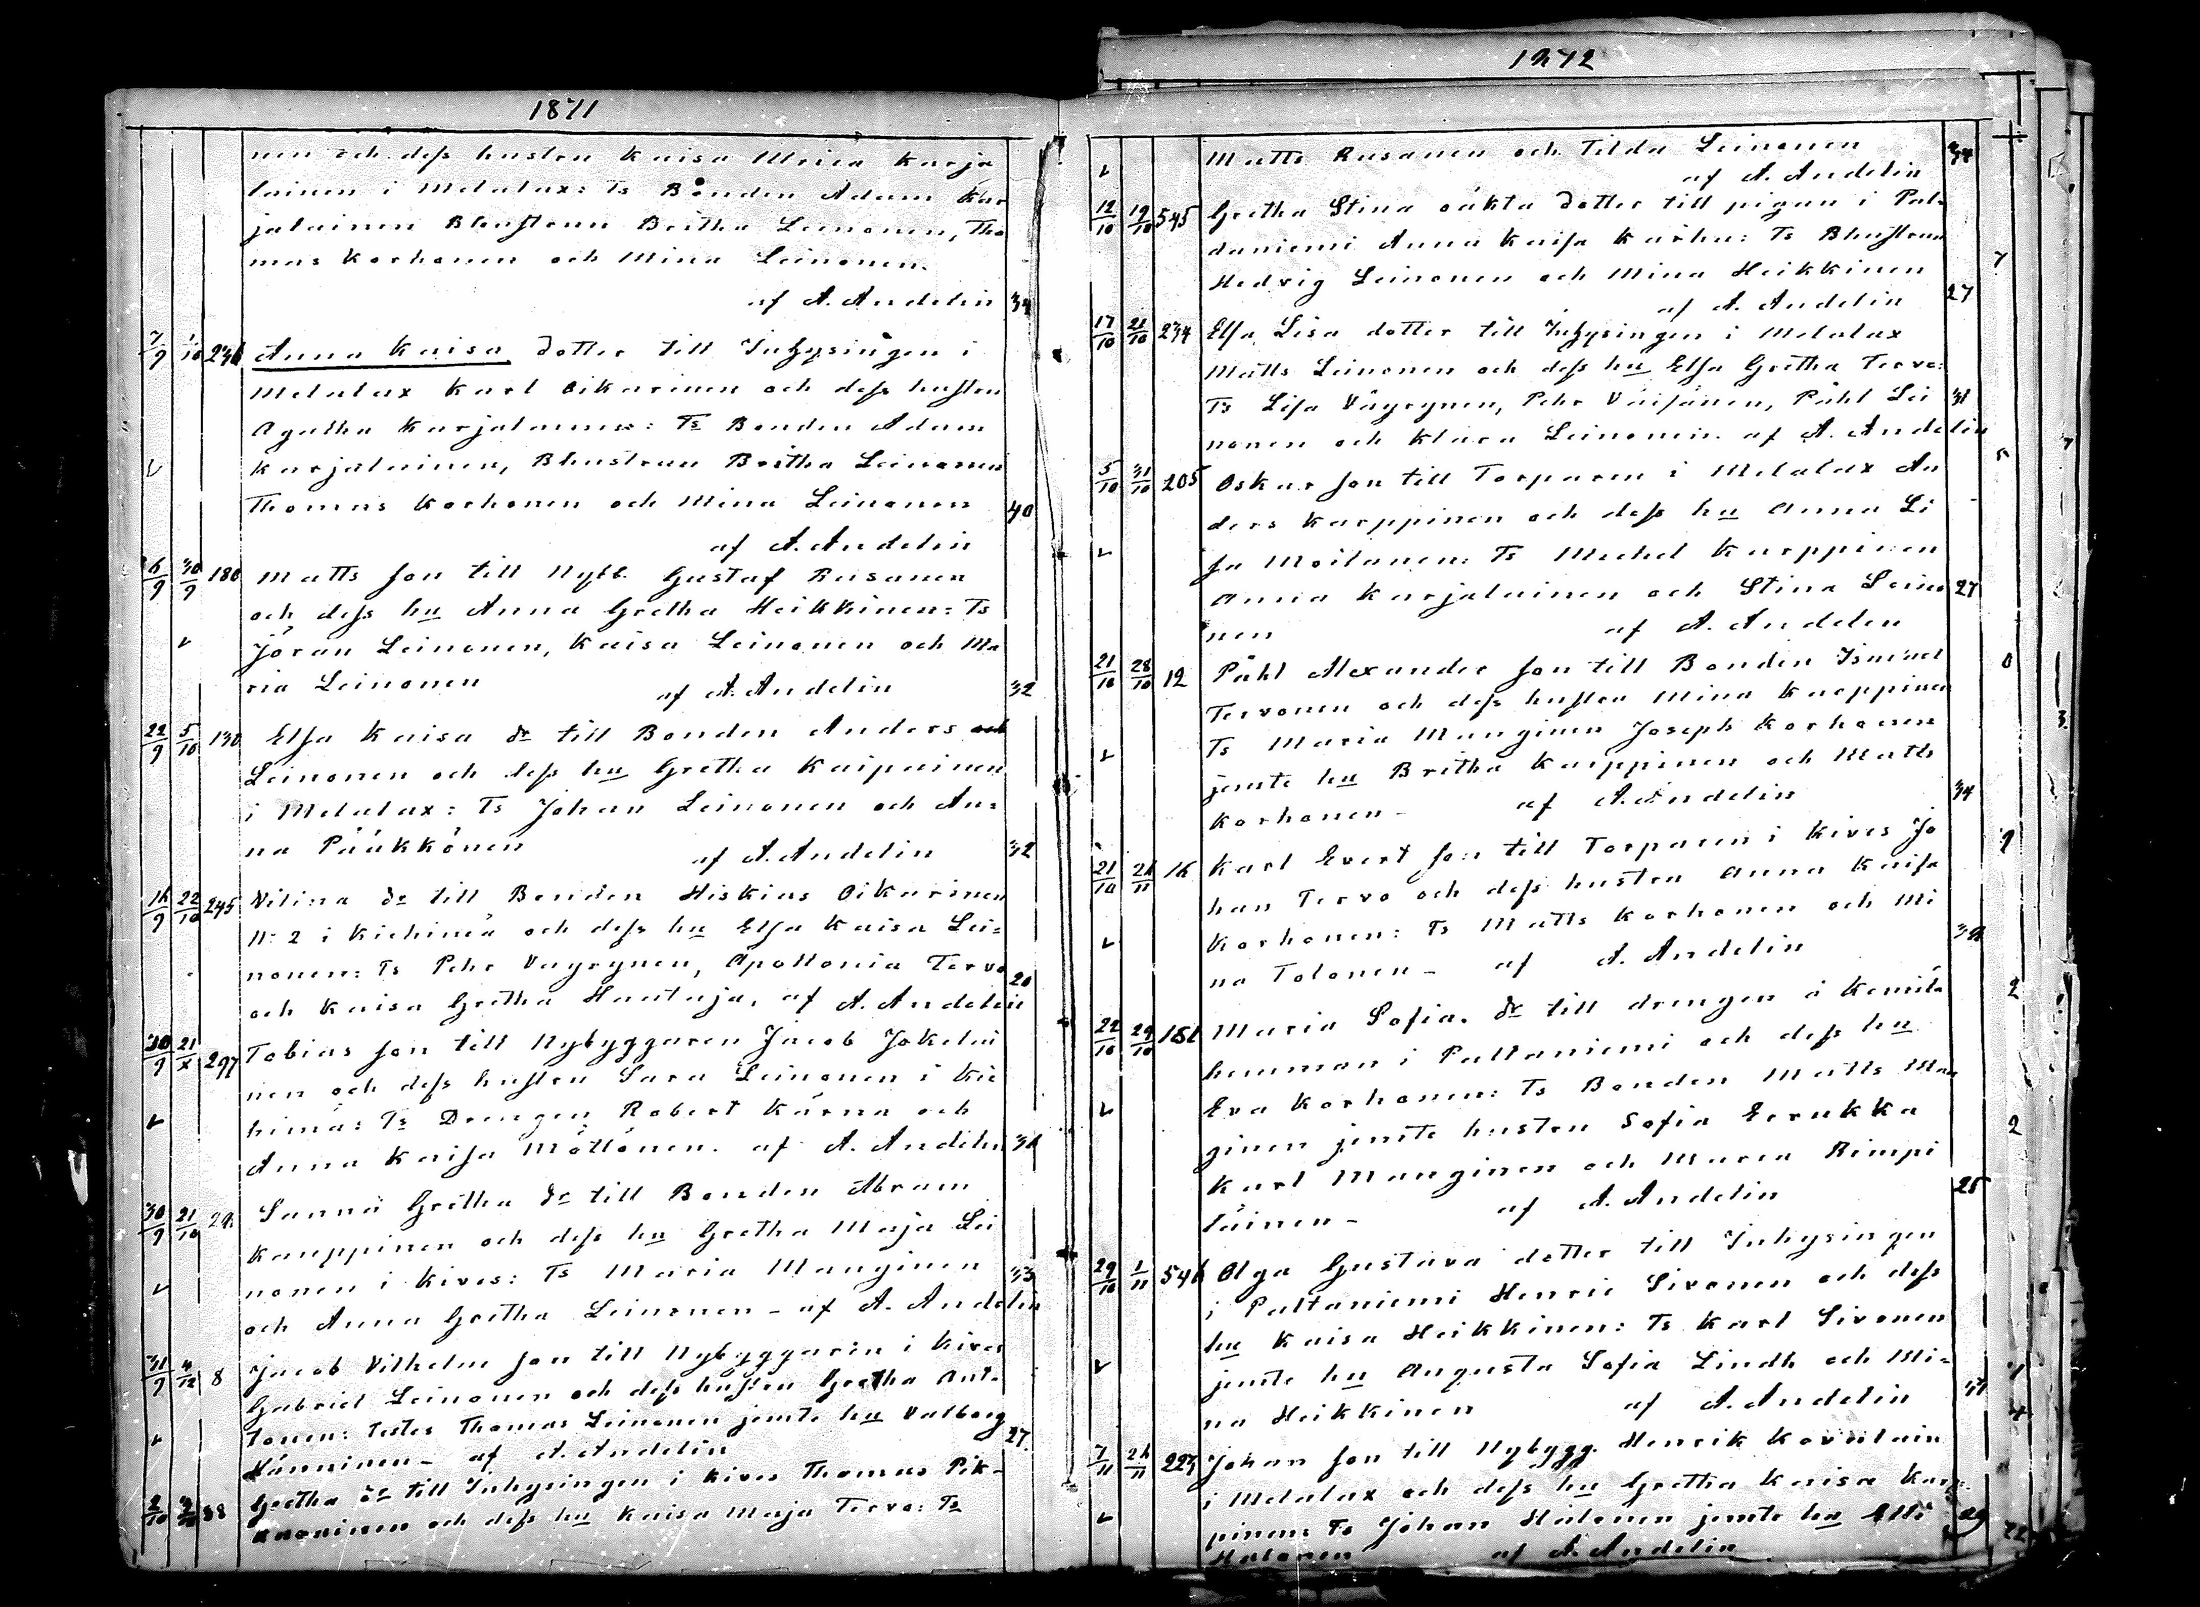 1871
nen och dess hustru Kaisa Maria Karja
lainen i Melalax: Ts Bonden Adam Kar
jalainen Bhustrun Britha Leinonen, Tho
mas Korhonen och Mina Leinonen.
af A. Andelin 34
7/9 1/10 236 Anna Kaisa dotter till Inhysingen i
Melalax Karl Oikarinen och dess hustru
Agatha Karjalainen: Ts Bonden Adam
Karjalainen, Bhustrun Britha Leinonen
Thomas Korhonen och Mina Leinonen 40
af A. Andelin
6/9 30/9 180 Matts son till Nybb. Gustaf Rusanen
och dess hu Anna Gretha Heikkinen: Ts
Jöran Leinonen, Kaisa Leinonen och Ma
ria Leinonen af A. Andelin 32
22/9 5/10 130 Elsa Kaisa dr till Bonden Anders och
Leinonen och dess hu Gretha Kaipainen
i Melalax: Ts Johan Leinonen och An=
na Pääkkönen af A. Andelin 32
16/9 22/10 245 Vilina dr till Bonden Hiskias Oikarinen
N: 2 i Kiehimä och dess hu Elsa Kaisa Lei=
nonen: Ts Pehr Väyrynen, Apollonia Tervo 20
och Kaisa Gretha Hautaja. af A. Andelin
30/9 21/x 297 Tobias son till Nybyggaren Jacob Jokelai
nen och dess hustru Sara Leinonen i Kie
himä: Ts Drengen Robert Kärna och
Anna Kaisa Möttönen. af A. Andelin 36
30/9 21/10 Sanna Gretha dr till Bonden Abram
Kauppinen och dess hu Gretha Maja Lei
nonen i Kives: Ts Maria Manginen 33
och Anna Gretha Leinonen - af A. Andelin
31/9 4/12 8 Jacob Vilhelm son till Nybyggaren i Kives
Gabriel Leinonen och dess hustru Gretha Ant=
tonen: Testes Thomas Leinonen jemte hu Valborg 27
Hänninen - af A. Andelin
2/10 88 Gretha dr till Inhysingen i Kives Thomas Pik-
karainen och dess hu Kaisa Maja Tervo: Ts
1872
Matts Rusanen och Tilda Leinonen 34
af A. Andelin
12/10 19/10 545 Gretha Stina oäkta dotter till pigan i Pal=
daniemi Anna Kaisa Karhu: Ts Bhustrun
Hedvig Leinonen och Mina Heikkinen
af A. Andelin 27
17/10 21/10 234 Elsa Lisa dotter till Inhysingen i Melalax
Matts Leinonen och dess hu Elsa Gretha Tervo:
Ts Lisa Väyrynen, Pehr Väisänen, Påhl Lei 31
nonen och Klara Leinonen. af A. Andelin
5/10 31/10 205 Oskar son till Torparen i Melalax An
ders Karppinen och dess hu Anna Li
sa Moilanen: Ts Michel Karppinen
Anna Karjalainen och Stina Leino 27
nen af A. Andelin
21/10 28/10 12 Påhl Alexander son till Bonden Ismael
Tervonen och dess hustru Mina Karppinen
Ts Maria Manginen Joseph Korhonen
jemte hu Britha Karppinen och Matts
Korhonen - af A. Andelin 34
21/10 26/11 16 Karl Evert son till Torparen i Kives Jo
han Tervo och dess hustru Anna Kaisa
Korhonen: Ts Matts Korhonen och Mi
na Tolonen - af A. Andelin
22/10 29/10 151 Maria Sofia. dr till drengen å Kemilä
hemman i Paltaniemi och dess hu
Eva Korhonen: Ts Bonden Matts Man
ginen jemte hustru Sofia Eerukka
Karl Manginen och Maria Rimpi
läinen - af A. Andelin 25
29/10 1/11 546 Olga Gustava dotter till Inhysingen
i Paltaniemi Henric Sivonen och dess
hu Kaisa Heikkinen: Ts Karl Sivonen
jemte hu Augusta Sofia Lindh och Mi=
na Heikkinen af A. Andelin
7/11 26/11 223 Johan son till Nybygg. Henrik Kovalain
i Melalax och dess hu Gretha Kaisa Karp
pinen: Ts Johan Halonen jemte hu 29
Halonen af A. Andelin